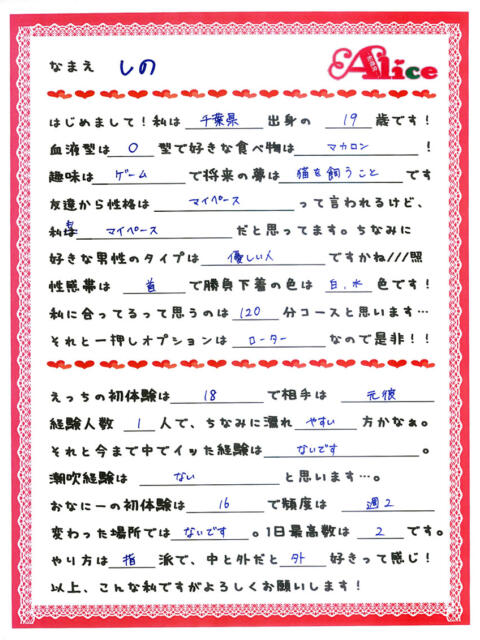 なまえ しの
Alice
はじめまして！私は 千葉県 出身の 19 歳です！
血液型は O 型で好きな食べ物は マカロン ！
趣味は ゲーム で将来の夢は 猫を飼うこと です
友達から性格は マイペース って言われるけど、
私は マイペース だと思ってます。ちなみに
好きな男性のタイプは 優しい人 ですかね///照
性感帯は 首 で勝負下着の色は 白、水 色です！
私に合ってるって思うのは 120 分コースと思います…
それと一押しオプションは ローター なので是非！！
えっちの初体験は 18 で相手は 元彼
経験人数 1 人で、ちなみに濡れ やすい 方かなぁ。
それと今まで中でイッた経験は ないです 。
潮吹経験は ない と思います…。
変わった場所では ないです 。1日最高数は 2 です。
やり方は 指 派で、中と外だと 外 好きって感じ！
以上、こんな私ですがよろしくお願いします！